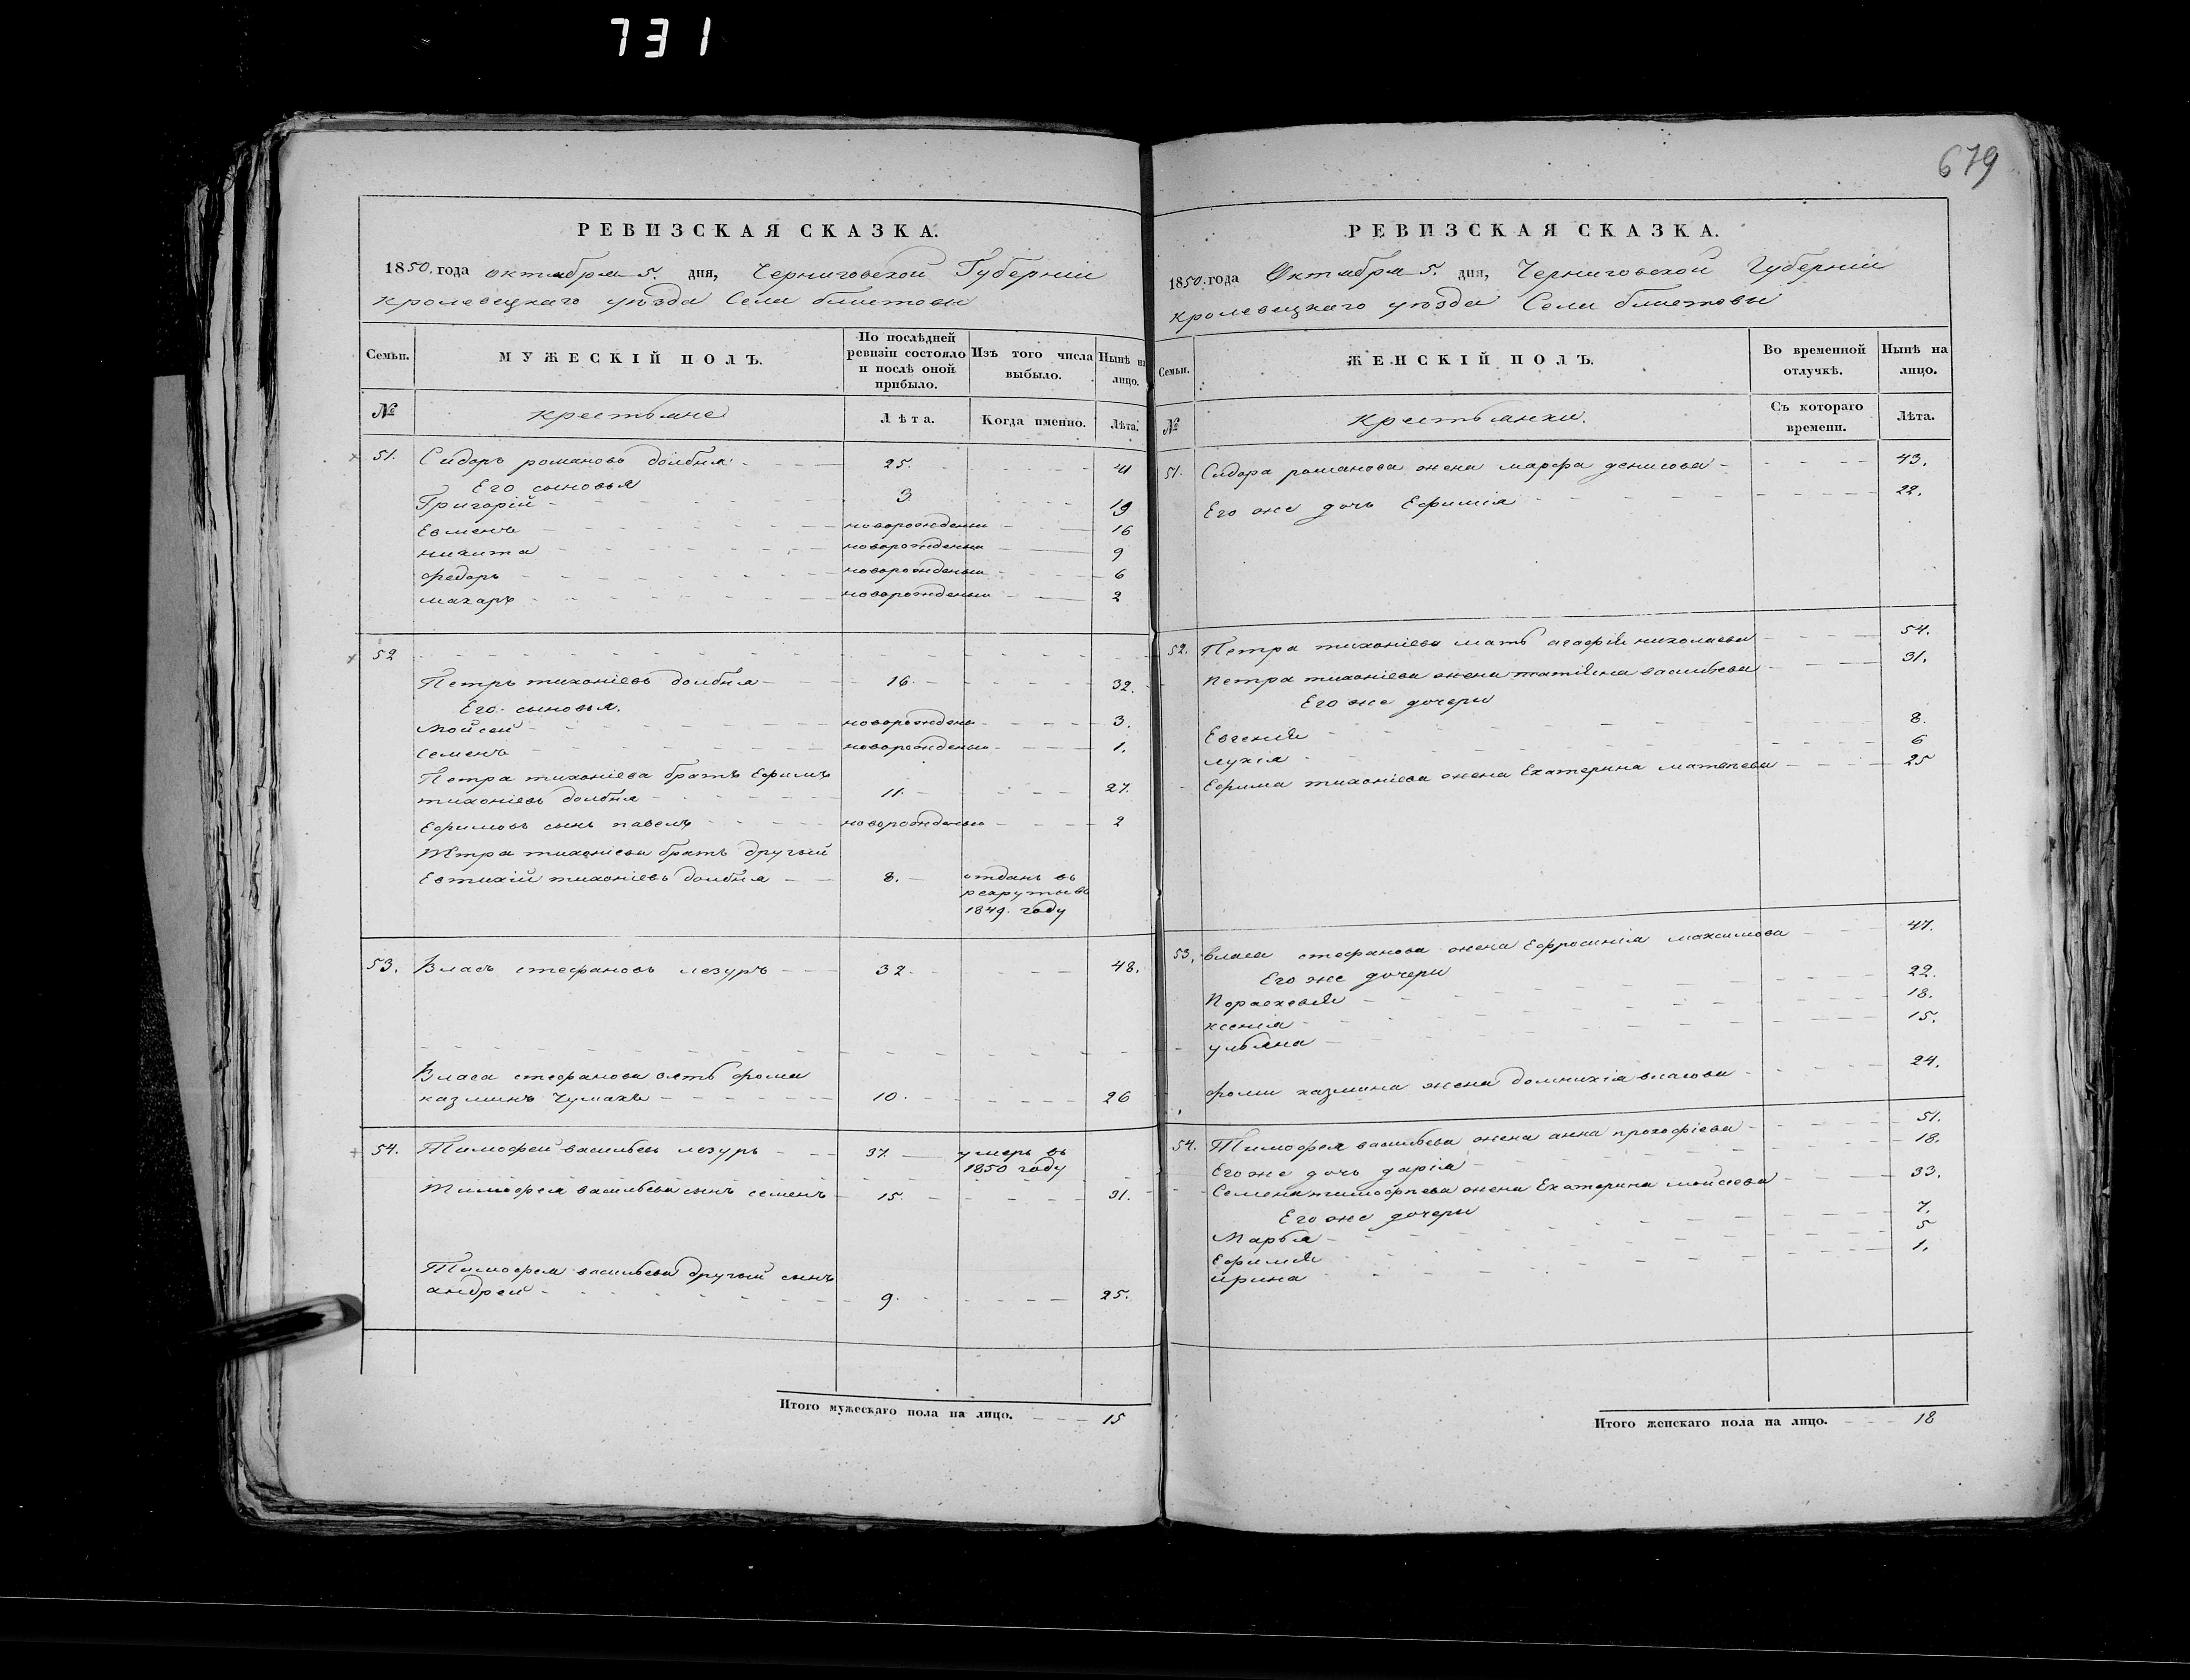 731
679
РЕВИЗСКАЯ СКАЗКА.
1850. года октября 5. дня, Черниговской Губерніи
кролевецкаго уѣзда Села блистовы
Семьи.
МУЖЕСКІЙ ПОЛЪ.
По послѣдней ревизіи состояло и послѣ оной прибыло.
Изъ того числа выбыло.
Нынѣ на лицо.
№
крестьяне
Лѣта.
Когда именно.
Лѣта.
51. Сидоръ романовъ долбня 25. 41
Его сыновья
Григорій 3 19
Евменъ новорожденъ 16
никита новорожденъ 9
федоръ новорожденъ 6
макаръ новорожденъ 2
52
Петръ тихоніевъ долбня 16. 32.
Его сыновья.
Мойсей новорожденъ 3.
Семенъ новорожденъ 1.
Петра тихоніева братъ Ефимъ
тихоніевъ долбня 11. 27.
Ефимовъ сынъ павелъ новорожденъ 2
Петра тихоніева братъ другій
Евтихій тихоніевъ долбня 8. отданъ въ
рекруты въ
1849. году
53. Власъ стефановъ мозуръ 32. 48.
Власа стефанова зять фома
казминъ Чумакъ 10. 26
54. Тимофей васильевъ мозуръ 37. умеръ въ
1850 году
Тимофея васильева сынъ семенъ 15. 31.
Тимофея васильева другій сынъ
андрей 9. 25.
Итого мужескаго пола на лицо. 15
РЕВИЗСКАЯ СКАЗКА.
1850. года Октября 5. дня, Черниговской Губерніи
кролевецкаго уѣзда Села блистовы
Семьи.
ЖЕНСКІЙ ПОЛЪ.
Во временной отлучкѣ.
Нынѣ на лицо.
№
крестьянки.
Съ котораго времени.
Лѣта.
51. Сидора романова жена марфа денисова 43.
Его же дочь Ефимія 22.
52. Петра тихоніева мать агафія николаева 54.
Петра тихоніева жена татіяна васильева 31.
Его же дочери
Евгенія 8.
лукія 6
Ефима тихоніева жена Екатерина матвѣева 25
53. власа стефанова жена Ефросинія максимова 47.
Его же дочери
Пораскевія 22.
ксенія 18.
ульяна 15.
фомы казмина жена домникія власова 24.
54. Тимофея васильева жена анна прокофіева 51.
Его же дочь дарія 18.
Семена тимофѣева жена Екатерина мойсеева 33.
Его же дочери
Марья 7.
Ефимія 5
ирина 1.
Итого женскаго пола на лицо. 18